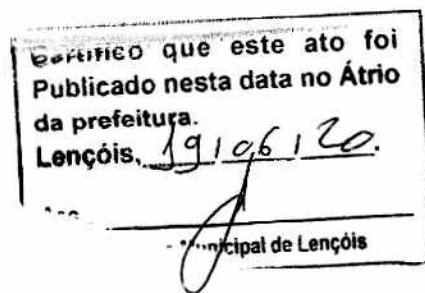 Certifico que este ato foi
Publicado nesta data no Átrio
da prefeitura.
Lençóis, 19/06/20.
Municipal de Lençóis